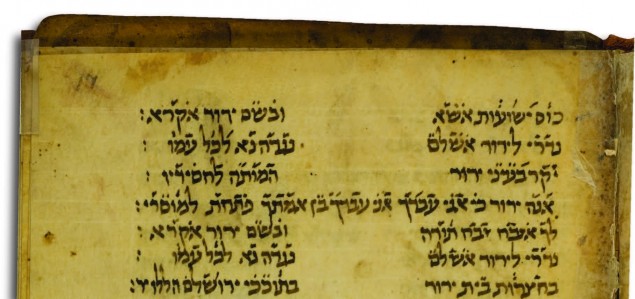 17
כוס ישועות אשא ובשם ידוד אקרא :
נדרי לידוד אשלם נגדה נא לכל עמו :
יקר בעיני ידוד המותה לחסידיו :
אנה ידוד כי אני עבדך אני עבדך בן אמתך פתחת למוסרי :
לך אזבח זבח תודה ובשם ידוד אקרא :
נדרי לידוד אשלם נגדה נא לכל עמו :
בחצרות בית ידוד בתוככי ירושלם הללו יד :